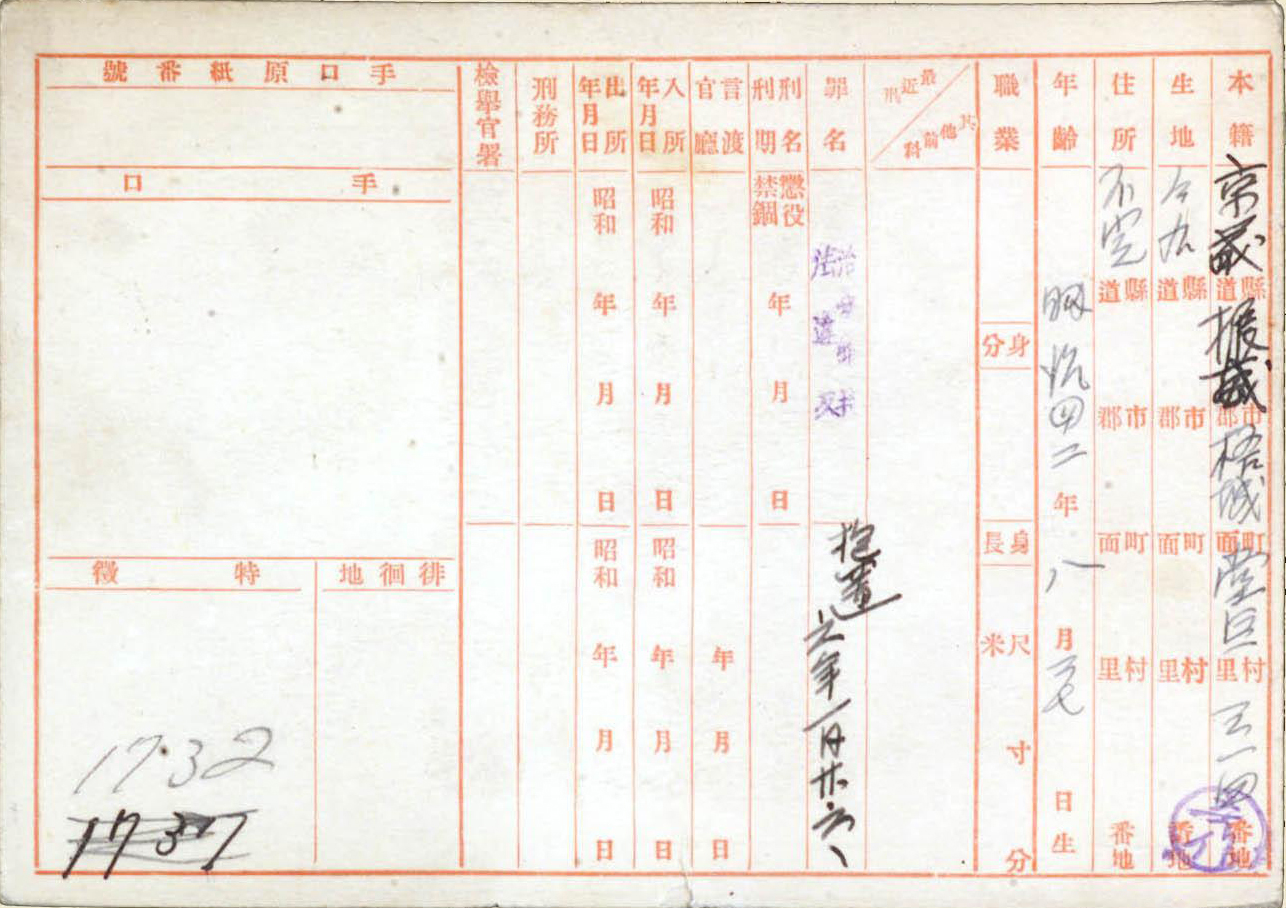 本籍 京畿道縣 振威郡市 梧城面町 堂巨里村 三一四番地
生地 仝右 道縣 郡市 面町 里村 番地
住所 不定 道縣 郡市 面町 里村 番地
年齡 明治四二年八月 日生
職業
身分
身長 尺米 寸 分
最近刑 其他前科
罪名 治安 違反
刑名刑期 懲役禁錮 年 月 日
言渡官廳 年 月 日
入所年月日 昭和 年 月 日 昭和 年 月 日
出所年月日 昭和 年 月 日 昭和 年 月 日
刑務所
檢擧官署
手口原紙番號
手口
徘徊地
特徵
1732
1737